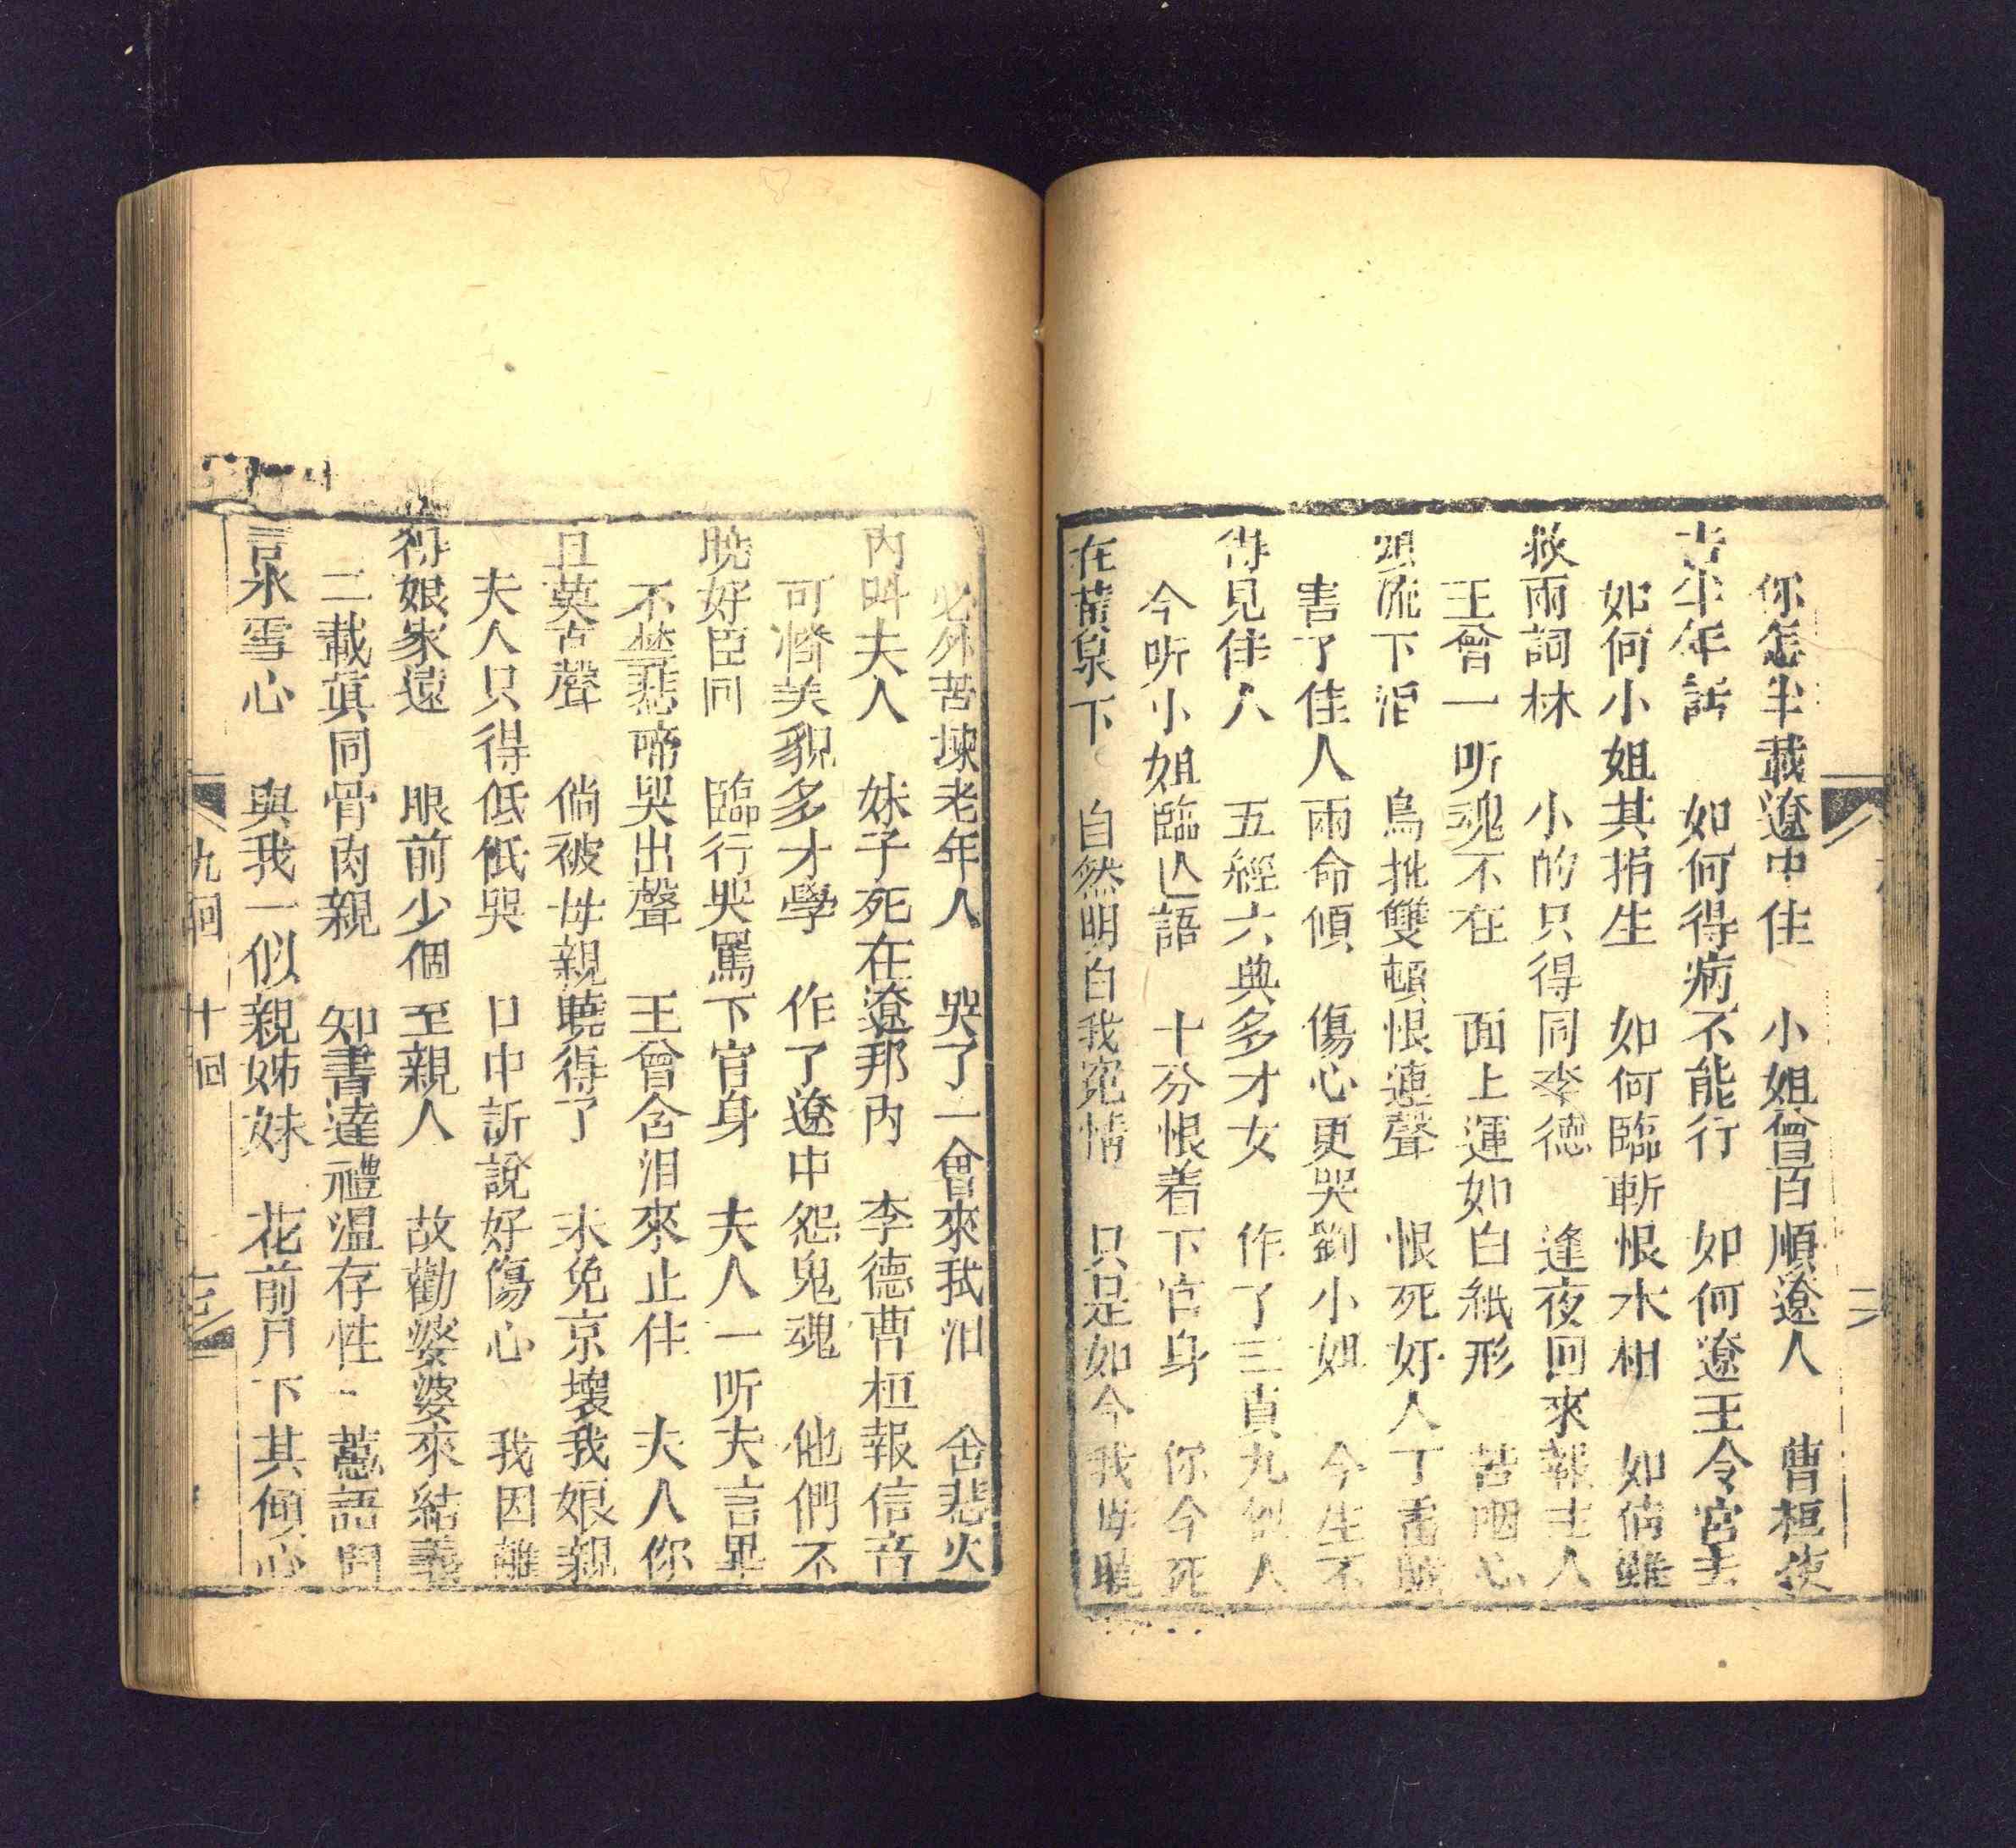 你怎半載遼中住　小姐曾百順遼人　曹桓使
去半年話　如何得病不能行　如何遼王令官去
如何小姐其捐生　如何臨斬恨水相　如何雖
救兩詞林　小的只得同李德　逢夜回來報主人
王曾一听魂不在　面上運如白紙形　苦咽心
頭流下泪　鳥批雙頓恨連聲　恨死好人丁
害了佳人兩命傾　傷心更哭劉小姐　今生不
得見佳人　五經六典多才女　作了三貞九烈人
今听小姐臨亾語　十分恨着下官身　你今死
在黃泉下　自然明白我冤情　只是如今我母曉
必然苦壊老年人　哭了一會來拭泪　舍悲火
內呌夫人　妹子死在遼邦內　李德曹桓報信音
可憐美貌多才學　作了遼中怨鬼魂　他們不
曉好臣囘　臨行哭罵下官身　夫人一听夫言畢
不禁悲啼哭出聲　王曾含泪來止住　夫人你
且莫高聲　倘被母親曉得了　未免京壊我娘親
夫人只得低低哭　口中訴說好傷心　我因離
得娘家遠　眼前少個至親人　故勸婆婆來結義
二載眞同骨肉親　知書達禮温存性　蕙語
言氷雪心　與我一似親姊妹　花前月下其傾心
九囘　十囘
二
三